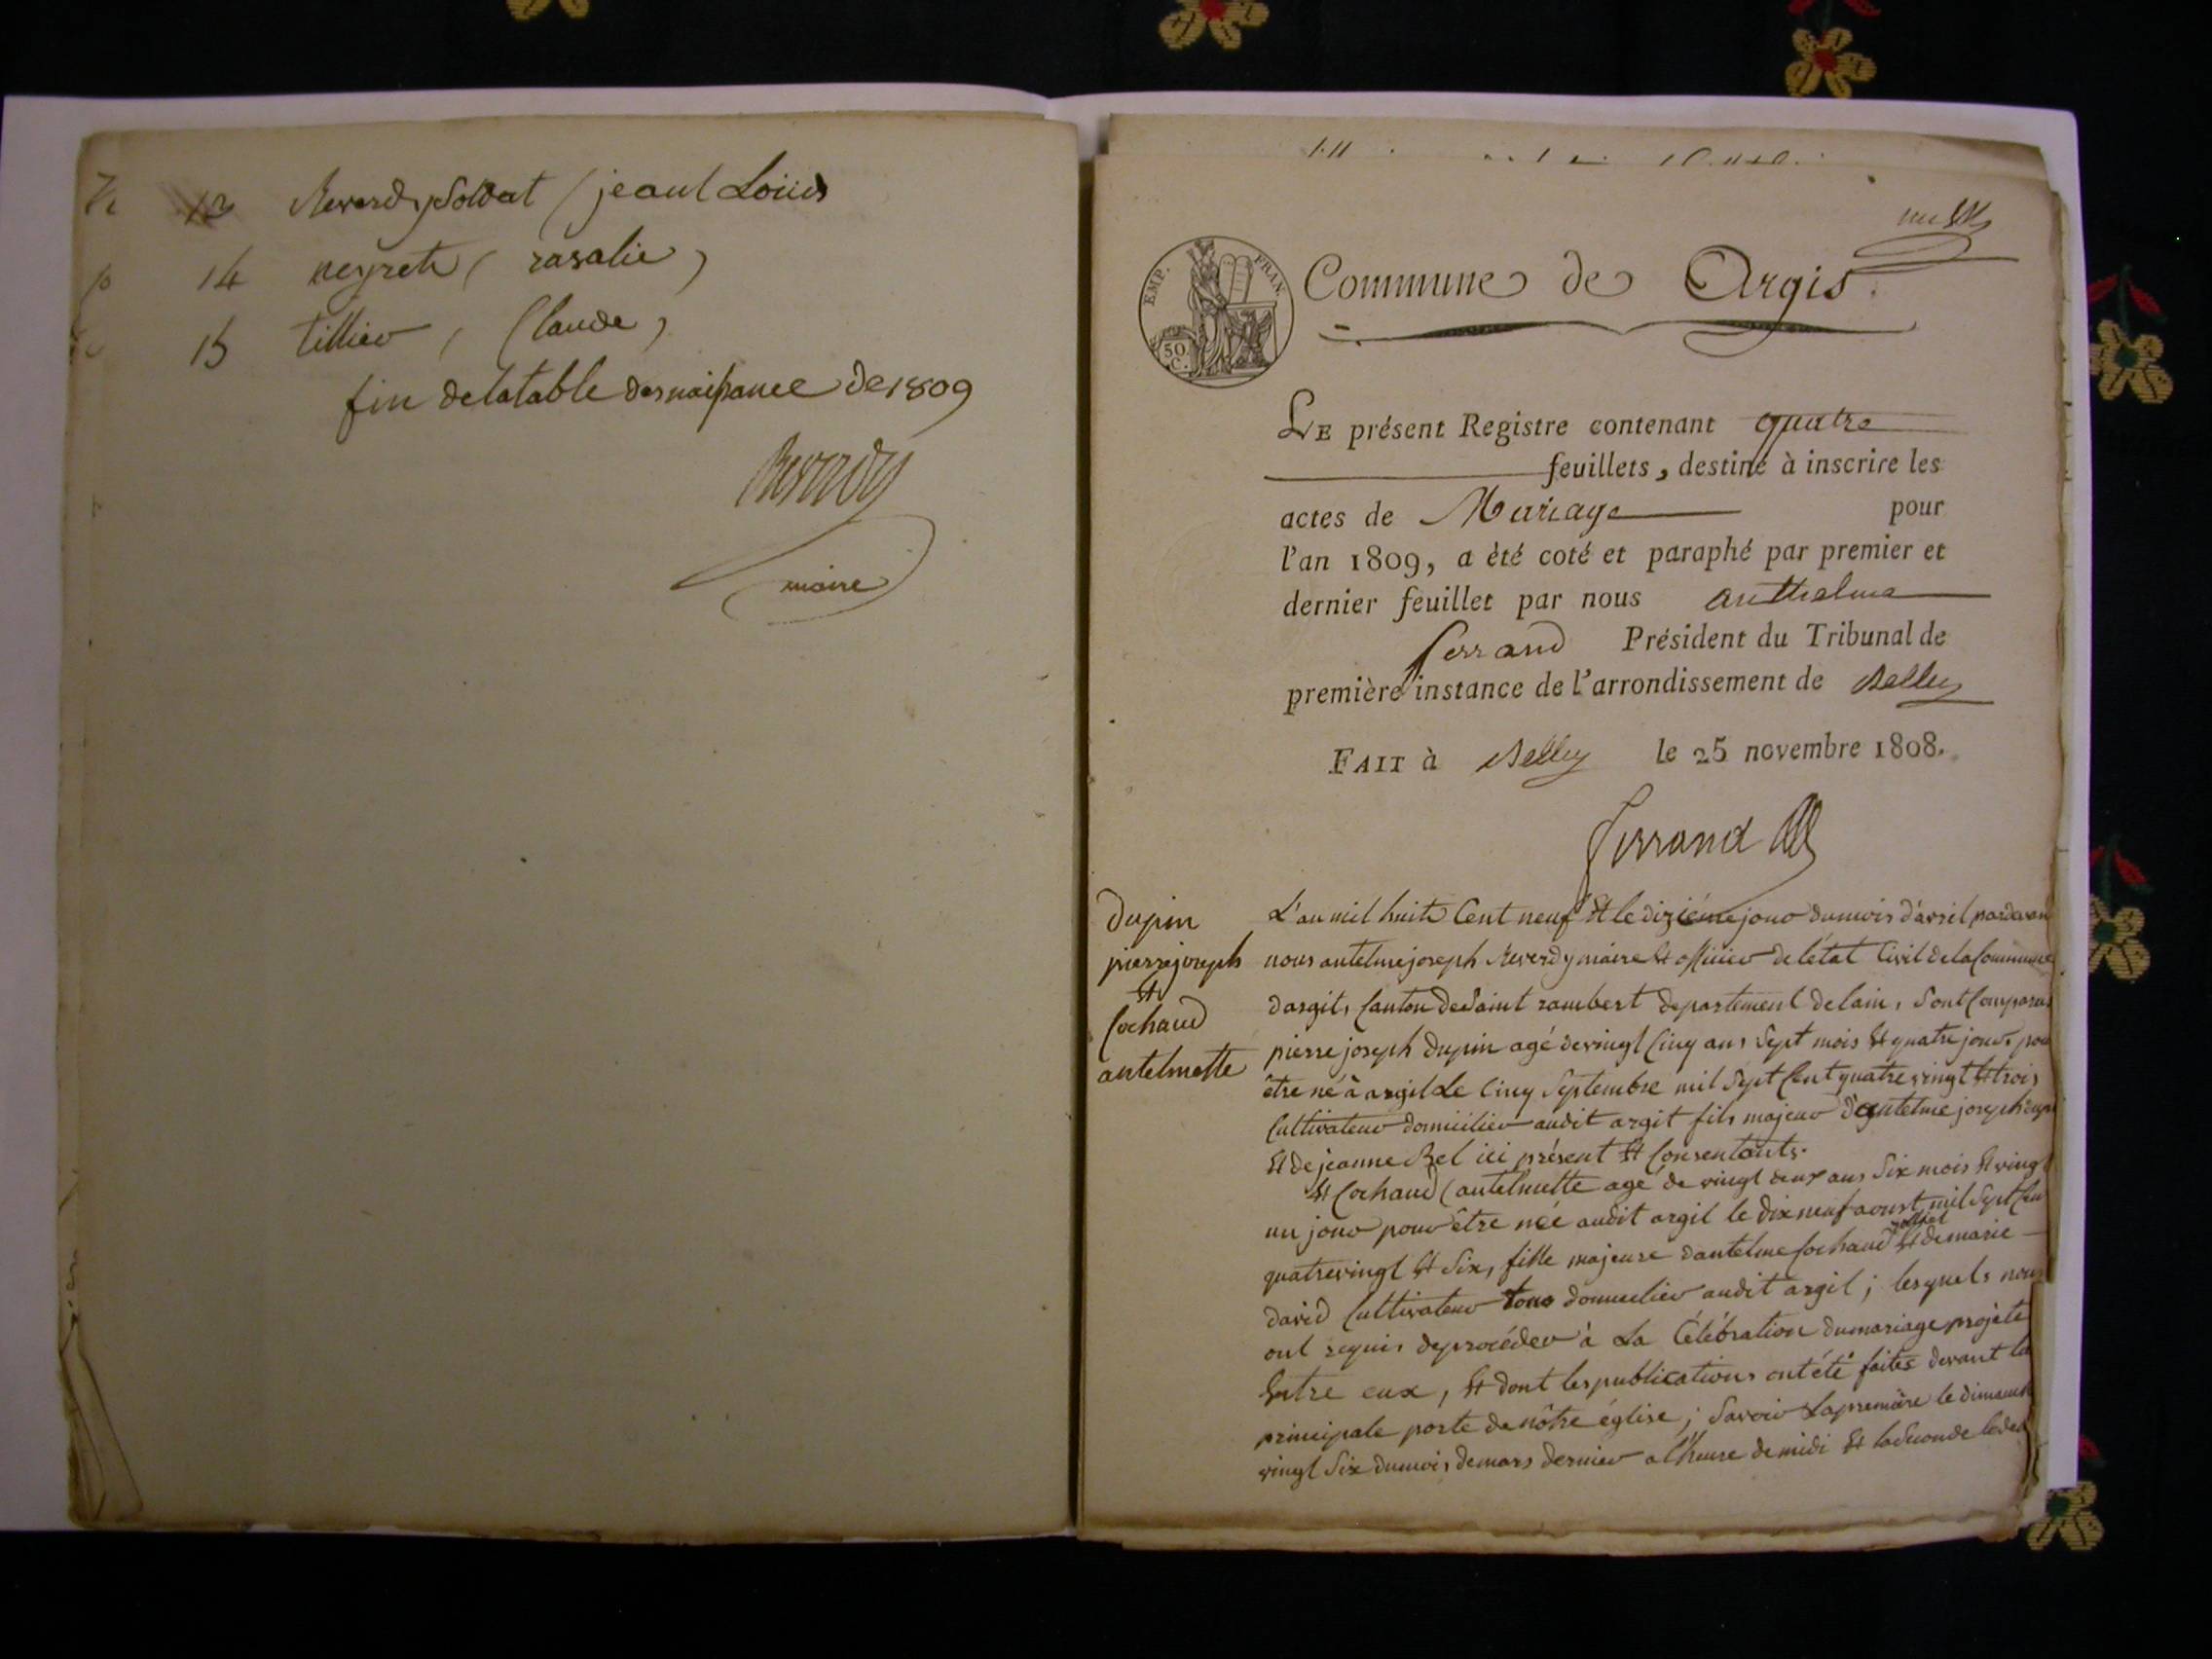 13 Reverdy Soldat (jean Louis
14 neyret (rosalie)
15 tillier, (Claude)
fin delatable des naissance de 1809
Reverdy
maire
EMP. FRAN.
50. C.
Commune de Argis.
LE présent Registre contenant quatre
feuillets, destiné à inscrire les
actes de Mariage pour
l'an 1809, a été coté et paraphé par premier et
dernier feuillet par nous anthelme
ferrand Président du Tribunal de
première instance de l'arrondissement de Belley
FAIT à Belley le 25 novembre 1808.
ferrand
dupin
pierre joseph
et
Cochaud
antelmette
L'an mil huit Cent neuf et le dizième jour dumois d'avril pardevan
nous antelme joseph Reverdy maire et officier de létat Civil dela Commune
dargit, Canton de Saint rambert departement delain, Sont Comparus
pierre joseph dupin agé devingt Cinq ans Sept mois et quatre jours pour
être né à argit Le Cinq Septembre mil Sept Cent quatre vingt et trois
Cultivateur domicilier audit argit fils majeur d'antelme joseph dupin
et de jeanne Bel ici présent et Consentants.
et Cochaud (antelmette agé de vingt deux ans Six mois et vingt
un jour pour être née audit argil le dix neuf aoust mil Sept Cen
quatrevingt et Six, fille majeure dantelme Cochaud et demarie
david Cultivateur tous domicilier audit argil; lesquels nous
ont requis deprocéder à La Célébration dumariage projeté
Entre eux, et dont les publications ont été faites devant la
principale porte de nôtre église; Savoir Lapremière le dimanch
vingt Six dumois demars dernier a lheure de midi et laSeconde le